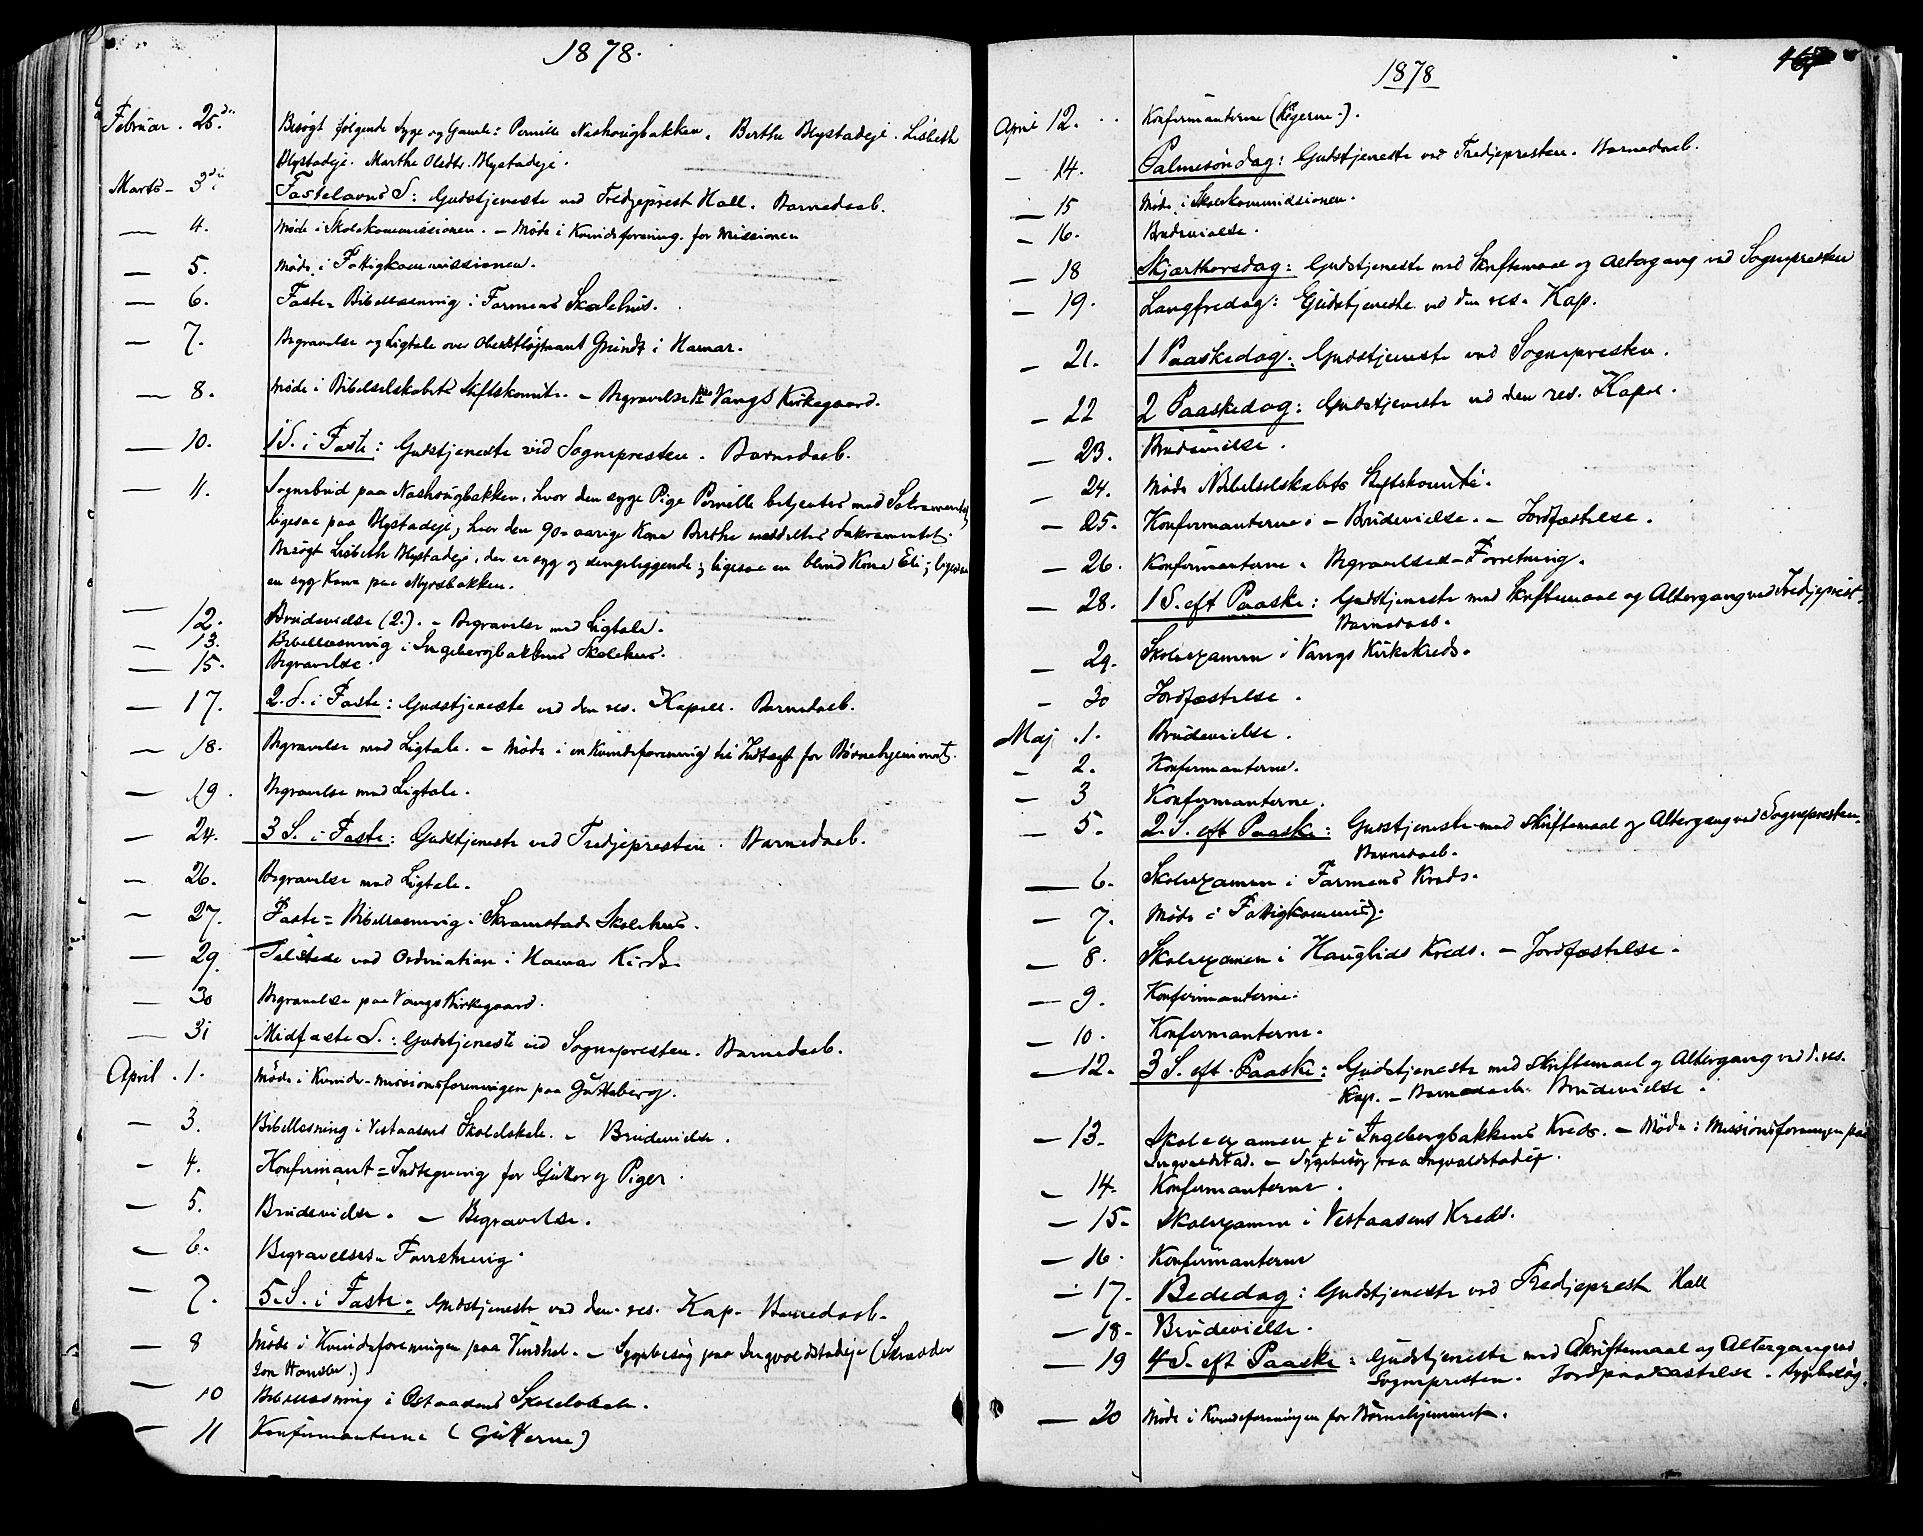 1878.
Februar. 25.de Besøgt følgende Syge og Gamle: Pernille Nashougbakken. Berthe Blystadeje. Lisbeth
Blystadeje. Marthe Olsdtr. Blystadeje.
Marts - 3die Fastelavns S: Gudstjeneste ved Tredjeprest Hall. Barnedaab.
— 4. Møde i Skolekommissionen. - Møde i Kvindeforening for Missionen
— 5. Møde i Fattigkommissionen.
— 6. Faste = Bibellæsning i Farmens Skolehus.
— 7. Begravelse og Ligtale over Oberstløjtnant Grundt i Hamar.
— 8. Møde i Bibelselskabets Stiftskomite. - Begravelse Vangs Kirkegaard.
— 10. 1 S. i Faste: Gudstjeneste ved Sognepresten. Barnedaab.
— 11. Sognebud paa Nashougbakken, hvor den syge Pige Pernille betjentes med Sakramentet,
ligesaa paa Blystadeje, hvor den 90-aarige Kone Berthe meddeltes Sakramentet.
Besøgt Lisbeth Blystadeje, der er syg og sengeliggende; ligesaa en blind Kone Eli; ligesaa
en syg Kone paa Myrebakken.
— 12. Brudevielse (2.). - Begravelse med Ligtale.
— 13. Bibellæsning i Ingebergbakkens Skolehus.
— 15. Begravelse.
— 17. 2. S. i Faste: Gudstjeneste ved den res. Kapell. Barnedaab.
— 18. Begravelse med Ligtale. - Møde i en Kvindeforening til Indtægt for Børnehjemmet.
— 19. Begravelse med Ligtale.
— 24. 3 S. i Faste: Gudstjeneste ved Tredjepresten. Barnedaab.
— 26. Begravelse med Ligtale.
— 27. Faste = Bibellæsning i Skramstad Skolehus.
— 29. Tilstede ved Ordination i Hamar Kirke
— 30 Begravelse paa Vangs Kirkegaard.
— 31 Midfaste S.: Gudstjeneste ved Sognepresten. Barnedaab.
April. 1. Møde i Kvinde-missionsforeningen paa Gutteberg.
— 3. Bibellæsning i Vestaasens Skolelokale. - Brudevielse.
— 4. Konfirmant = Indtegning for Gutter og Piger.
— 5. Brudevielse. - Begravelse.
— 6. Begravelses-Forretning.
— 7. 5. S. i Faste: Gudstjeneste ved den res. Kap. Barnedaab.
— 8 Møde i Kvindeforeningen paa Vindhol. - Sygebesøg paa Ingvoldstadeje (Skrædder
)
— 10 Bibellæsning i Ostaasens Skolelokale.
— 11 Konfirmanterne (Gutterne)
1878
April 12. Konfirmanterne (Pigerne.).
— 14. Palmesøndag: Gudstjeneste ved Tredjepresten. Barnedaab.
— 15 Møde i Skolekommissionen.
— 16. Brudevielse.
— 18 Skjærthorsdag: Gudstjeneste med Skriftemaal og Altergang ved Sognepresten
— 19. Langfredag: Gudstjeneste ved den res. Kap.
— 21. 1 Paaskedag: Gudstjeneste ved Sognepresten.
— 22 2 Paaskedag: Gudstjeneste ved den res. Kapel.
— 23. Brudevielse.
— 24. Møde i Bibelselskabets Stiftskomite.
— 25. Konfirmanterne. - Brudevielse. - Jordfæstelse.
— 26. Konfirmanterne. Begravelses-Forretning.
— 28. 1 S. eft Paaske: Gudstjeneste med Skriftemaal og Altergang ved Tredjeprest.
Barnedaab.
— 29. Skolexamen i Vangs Kirkekreds.
— 30 Jordfæstelse.
Maj. 1. Brudevielse.
— 2. Konfirmanterne.
— 3 Konfirmanterne.
— 5. 2. S. eft Paaske: Gudstjeneste med Skriftemaal og Altergang ved Sognepresten.
Barnedaab.
— 6. Skolexamen i Farmens Kreds.
— 7. Møde i Fattigkommis).
— 8. Skolexamen i Hauglids Kreds. - Jordfæstelse.
— 9. Konfirmanterne.
— 10. Konfirmanterne.
— 12. 3 S. eft. Paaske: Gudstjeneste med Skriftemaal og Altergang ved d. res.
Kap. - Barnedaab. Brudevielse.
— 13. Skolexamen i Ingebergbakkens Kreds. - Møde i Missionsforeningen paa
Ingvoldstad. - Sygebesøg paa Ingvoldstadeje.
— 14. Konfirmanterne.
— 15. Skolexamen i Vestaasens Kreds.
— 16. Konfirmanterne
— 17. Bededag: Gudstjeneste ved Tredjeprest Hall
— 18. Brudevielse.
— 19 4 S. eft Paaske: Gudstjeneste med Skriftemaal og Altergang ved
Sognepresten. Jordpaakastelse. Sygebesøg.
— 20 Møde i Kvindeforeningen for Børnehjemmet.